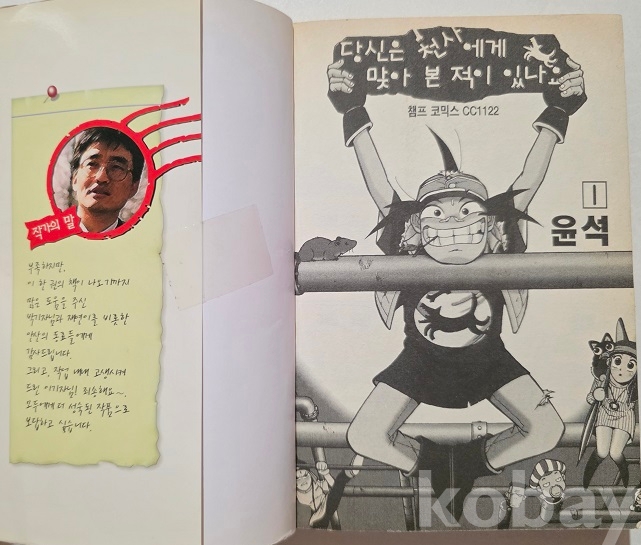 작가의 말
부족하지만,
이 한 권의 책이 나오기까지
많은 도움을 주신
박기자님과 재연이를 비롯한
만상의 동료들에게
감사드립니다.
그리고, 작업 내내 고생시켜
드린 이기자님! 죄송해요~.
모두에게 더 성숙된 작품으로
보답하고 싶습니다.
당신은 천사에게
맞아 본 적이 있나요
챔프 코믹스 CC1122
1
윤석
kobay